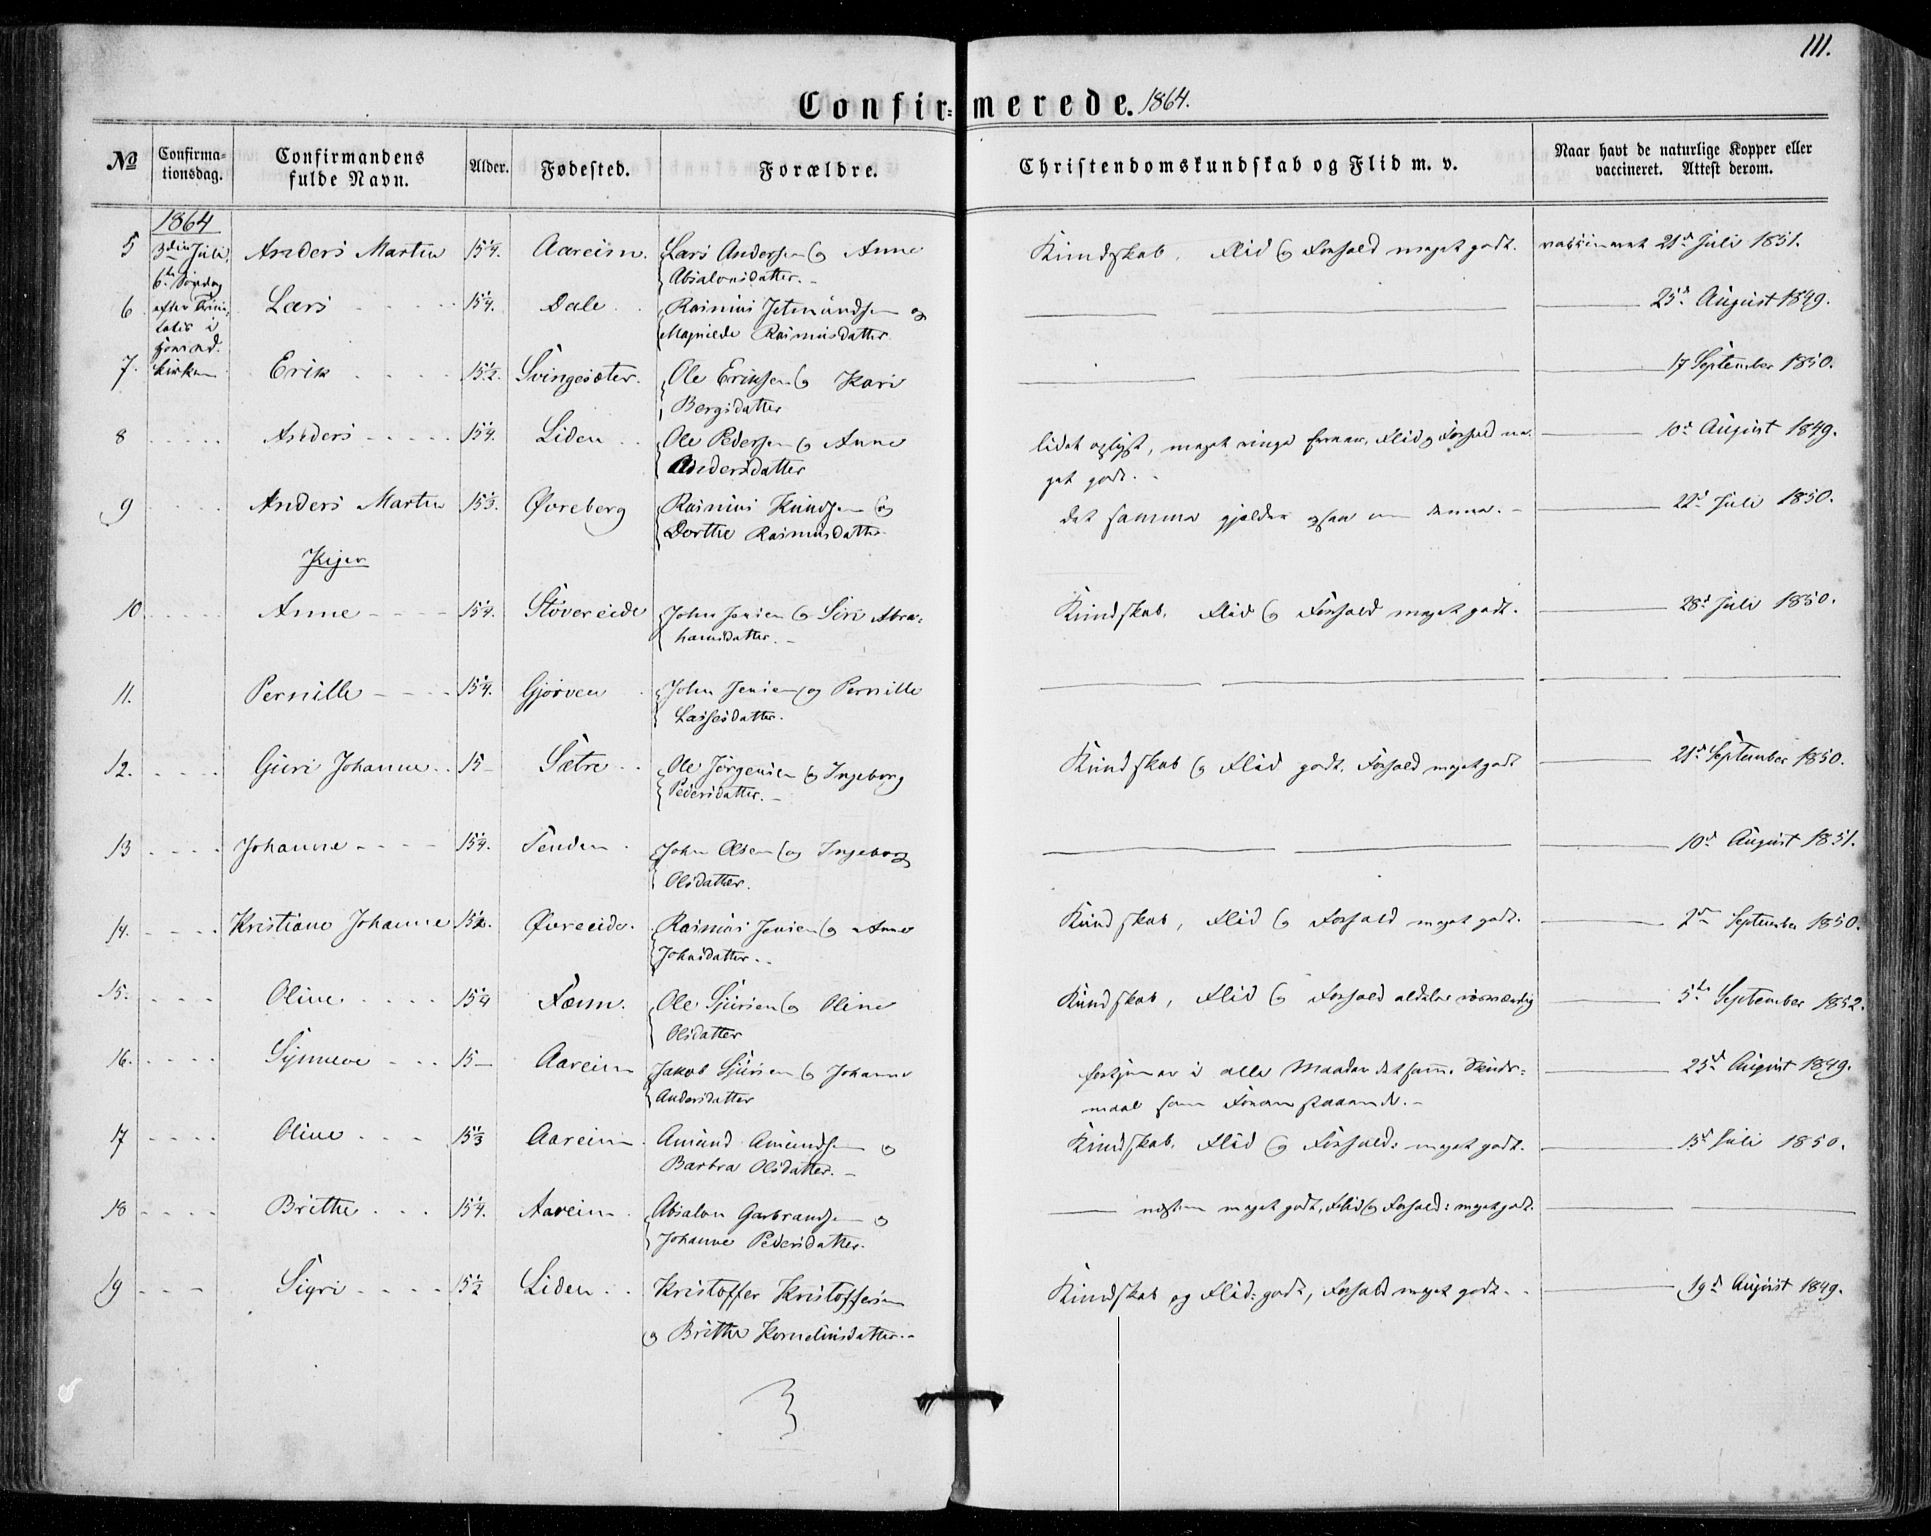 111.
Confirmerede. 1864.
No
Confirmationsdag.
Confirmandens fulde Navn.
Alder.
Fødested.
Forældre.
Christendomskundskab og Flid m. v.
Naar havt de naturlige Kopper eller vaccineret. Attest derom.
1864
3die Juli, 6te Søndag efter Trinitatis i
5 Anders Martin 15 1/4. Aareim. Lars Andersen og Anne Absalonsdatter. Kundskab, Flid og Forhold meget godt. vaccineret 21de Juli 1851.
6 Lars 15 1/4. Dale Rasmus Jetmundsen og Magnilde Rasmusdatter. 25de August 1849.
7. Erik 15 1/2. Svingesæter. Ole Eriksen og Kari Bergsdatter 17 September 1850.
8 Anders 15 1/4. Liden Ole Pedersen og Anne Andersdatter lidet oplyst, meget ringe Evner, Flid og Forhold meget godt. 10de August 1849.
9 Anders Martin 15 1/3. Øvreberg Rasmus Knudsen og Dorthe Rasmusdatter det samme gjælder ogsaa om denne. 22de Juli 1850.
Piger
10 Anne 15 1/4. Støvereide John Jensen og Siri Abrahamsdatter. Kundskab, Flid og Forhold meget godt. 28de Juli 1850.
11. Pernille 15 1/4. Gjørven John Jensen og Pernille Lassesdatter.
12. Guri Johanne 15 Sætre Ole Jørgensen og Ingeborg Pedersdatter. Kundskab og Flid godt. Forhold meget godt 21de September 1850.
13 Johanne 15 1/4. Tenden John Olsen og Ingeborg Olsdatter. 10de August 1851.
14. Kristiane Johanne 15 1/2. Øvreeide. Rasmus Jensen og Anne Johnsdatter. Kundskab, Flid og Forhold meget godt. 2den September 1850.
15. Oline 15 1/4 Fænn. Ole Sjursen og Oline Olsdatter Kundskab, Flid og Forhold aldeles rosværdig 5te September 1852.
16. Synneve 15 Aareim Jakob Sjursen og Johanne Andersdatter fortjener i alle Maader det samme Skudsmaal som Foranstaaende. 25de August 1849.
17 Oline 15 1/3 Aareim Amund Amundsen og Barbra Olsdatter. Kundskab, Flid og Forhold: meget godt. 15de Juli 1850.
18 Brithe 15 1/4. Aareim Absalon Garbrandsen og Johanne Pedersdatter. næsten meget godt, Flid og Forhold: meget godt.
19 Sigri 15 1/2 Liden Kristoffer Kristoffersen og Brithe Kornelinsdatter. Kundskab og Flid: godt, Forhold meget godt. 19de August 1849.